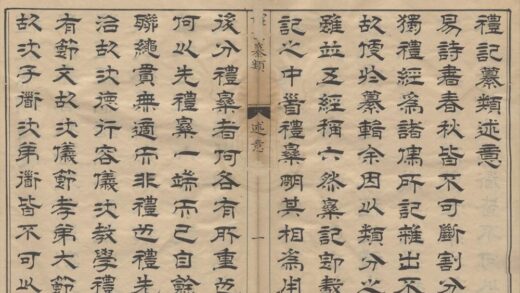 禮記纂類述意
易詩書春秋皆不可斷割分
獨禮經為諸儒所記雜出不
故便於纂輯余因以類分之
雖並五經稱六然樂記即載
記之中禮樂朙其相為用
纂類
述意
一
後分禮樂者何各有所重也
何以先禮樂一端而已自餘
聯繩貫無適而非禮也禮先
治故次德行容次教學
有節文故次儀節孝弟大節
故次子衟次弟衟皆不可以